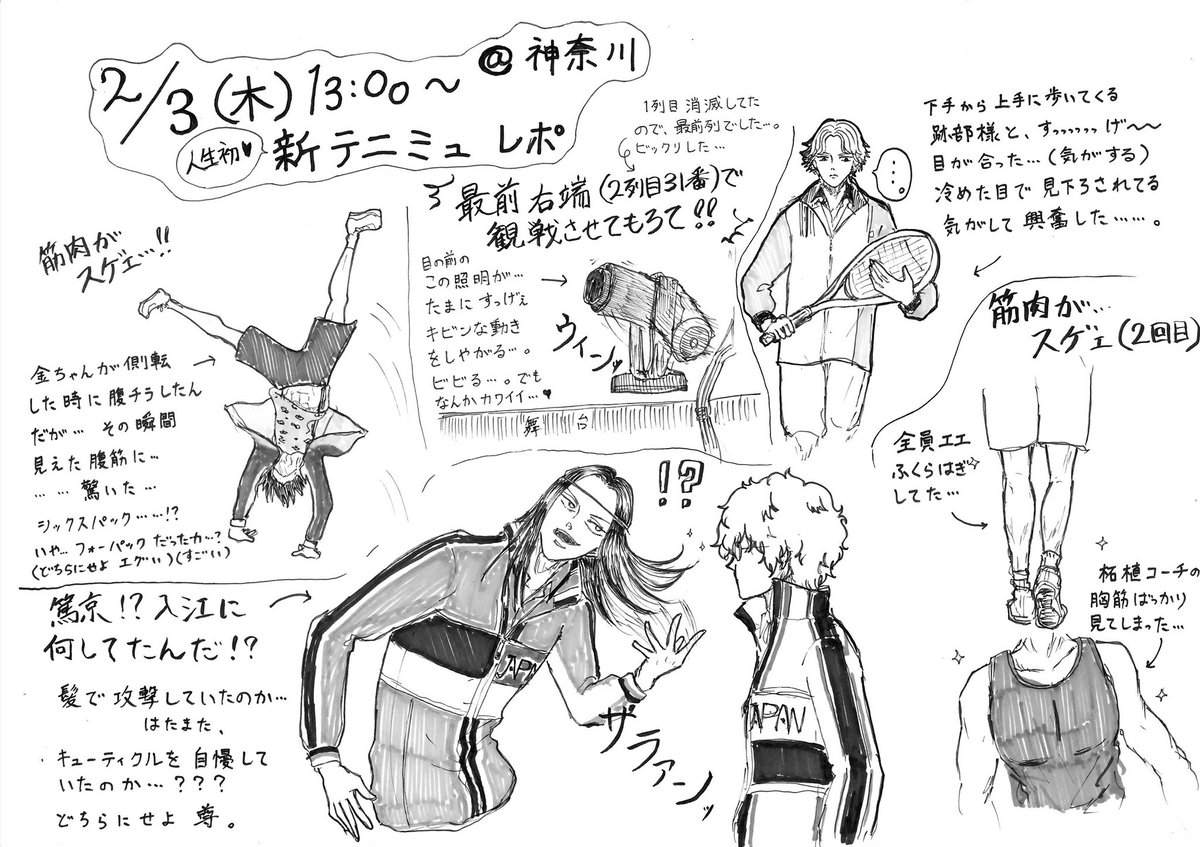 2/3(木)13:00〜@神奈川
人生初♥
新テニミュ レポ
1列目消滅してた
ので、最前列でした…。
ビックリした…
最前右端(2列目31番)で
観戦させてもろて!!
目の前の
この照明が…
たまに すっげぇ
キビンな動き
をしやがる…。
ビビる…。でも
なんかカワイイ…♥
ウィンッ
舞台
下手から上手に歩いてくる
跡部様と、すっっっっっっげ〜〜
目が合った…(気がする)
冷めた目で見下ろされてる
気がして興奮した……。
…。
筋肉が
スゲェ…!!
金ちゃんが側転
した時に腹チラしたん
だが… その瞬間
見えた腹筋に…
……驚いた…
シックスパック……!?
いや…フォーパックだったか…?
(どちらにせよエグい)(すごい)
筋肉が…
スゲェ(2回目)
全員エエ
ふくらはぎ
してた…
柘植コーチの
胸筋ばっかり
見てしまった…
篤京!?入江に
何してたんだ!?
髪で攻撃していたのか…
はたまた、
キューティクルを自慢して
いたのか…???
どちらにせよ 尊。
!?
JAPAN
JAPAN
ザラァーンッ